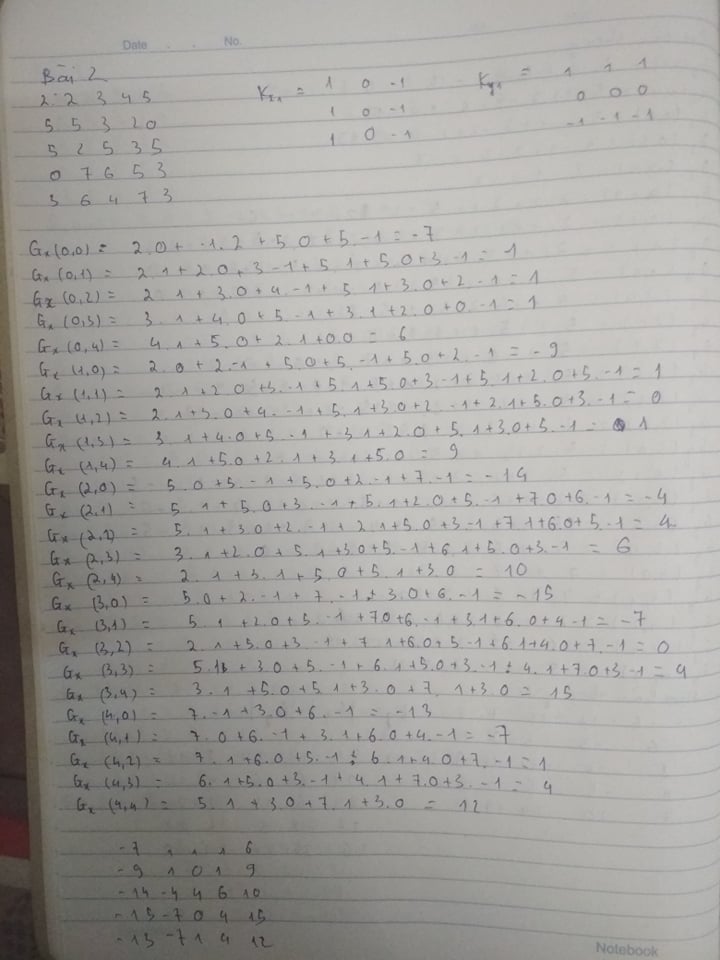 Date . . No.
Bài 2
2 2 3 4 5
5 5 3 2 0
5 2 5 3 5
0 7 6 5 3
3 6 4 7 3
Kx1 = 1 0 -1
1 0 -1
1 0 -1
Ky1 = 1 1 1
0 0 0
-1 -1 -1
Gx (0,0) = 2.0 + -1.2 + 5.0 + 5.-1 = -7
Gx (0,1) = 2.1 + 2.0 + 3.-1 + 5.1 + 5.0 + 3.-1 = 1
Gx (0,2) = 2.1 + 3.0 + 4.-1 + 5.1 + 3.0 + 2.-1 = 1
Gx (0,3) = 3.1 + 4.0 + 5.-1 + 3.1 + 2.0 + 0.-1 = 1
Gx (0,4) = 4.1 + 5.0 + 2.1 + 0.0 = 6
Gx (1,0) = 2.0 + 2.-1 + 5.0 + 5.-1 + 5.0 + 2.-1 = -9
Gx (1,1) = 2.1 + 2.0 + 3.-1 + 5.1 + 5.0 + 3.-1 + 5.1 + 2.0 + 5.-1 = 1
Gx (1,2) = 2.1 + 3.0 + 4.-1 + 5.1 + 3.0 + 2.-1 + 2.1 + 5.0 + 3.-1 = 0
Gx (1,3) = 3.1 + 4.0 + 5.-1 + 3.1 + 2.0 + 5.1 + 3.0 + 5.-1 = 1
Gx (1,4) = 4.1 + 5.0 + 2.1 + 3.1 + 5.0 = 9
Gx (2,0) = 5.0 + 5.-1 + 5.0 + 2.-1 + 7.-1 = -14
Gx (2,1) = 5.1 + 5.0 + 3.-1 + 5.1 + 2.0 + 5.-1 + 7.0 + 6.-1 = -4
Gx (2,2) = 5.1 + 3.0 + 2.-1 + 2.1 + 5.0 + 3.-1 + 7.1 + 6.0 + 5.-1 = 4
Gx (2,3) = 3.1 + 2.0 + 5.1 + 3.0 + 5.-1 + 6.1 + 5.0 + 3.-1 = 6
Gx (2,4) = 2.1 + 3.1 + 5.0 + 5.1 + 3.0 = 10
Gx (3,0) = 5.0 + 2.-1 + 7.-1 + 3.0 + 6.-1 = -15
Gx (3,1) = 5.1 + 2.0 + 5.-1 + 7.0 + 6.-1 + 3.1 + 6.0 + 4.-1 = -7
Gx (3,2) = 2.1 + 5.0 + 3.-1 + 7.1 + 6.0 + 5.-1 + 6.1 + 4.0 + 7.-1 = 0
Gx (3,3) = 5.1 + 3.0 + 5.-1 + 6.1 + 5.0 + 3.-1 + 4.1 + 7.0 + 3.-1 = 4
Gx (3,4) = 3.1 + 5.0 + 5.1 + 3.0 + 7.1 + 3.0 = 15
Gx (4,0) = 7.-1 + 3.0 + 6.-1 = -13
Gx (4,1) = 7.0 + 6.-1 + 3.1 + 6.0 + 4.-1 = -7
Gx (4,2) = 7.1 + 6.0 + 5.-1 + 6.1 + 4.0 + 7.-1 = 1
Gx (4,3) = 6.1 + 5.0 + 3.-1 + 4.1 + 7.0 + 3.-1 = 4
Gx (4,4) = 5.1 + 3.0 + 7.1 + 3.0 = 12
-7 1 1 1 6
-9 1 0 1 9
-14 -4 4 6 10
-15 -7 0 4 15
-13 -7 1 4 12
Notebook